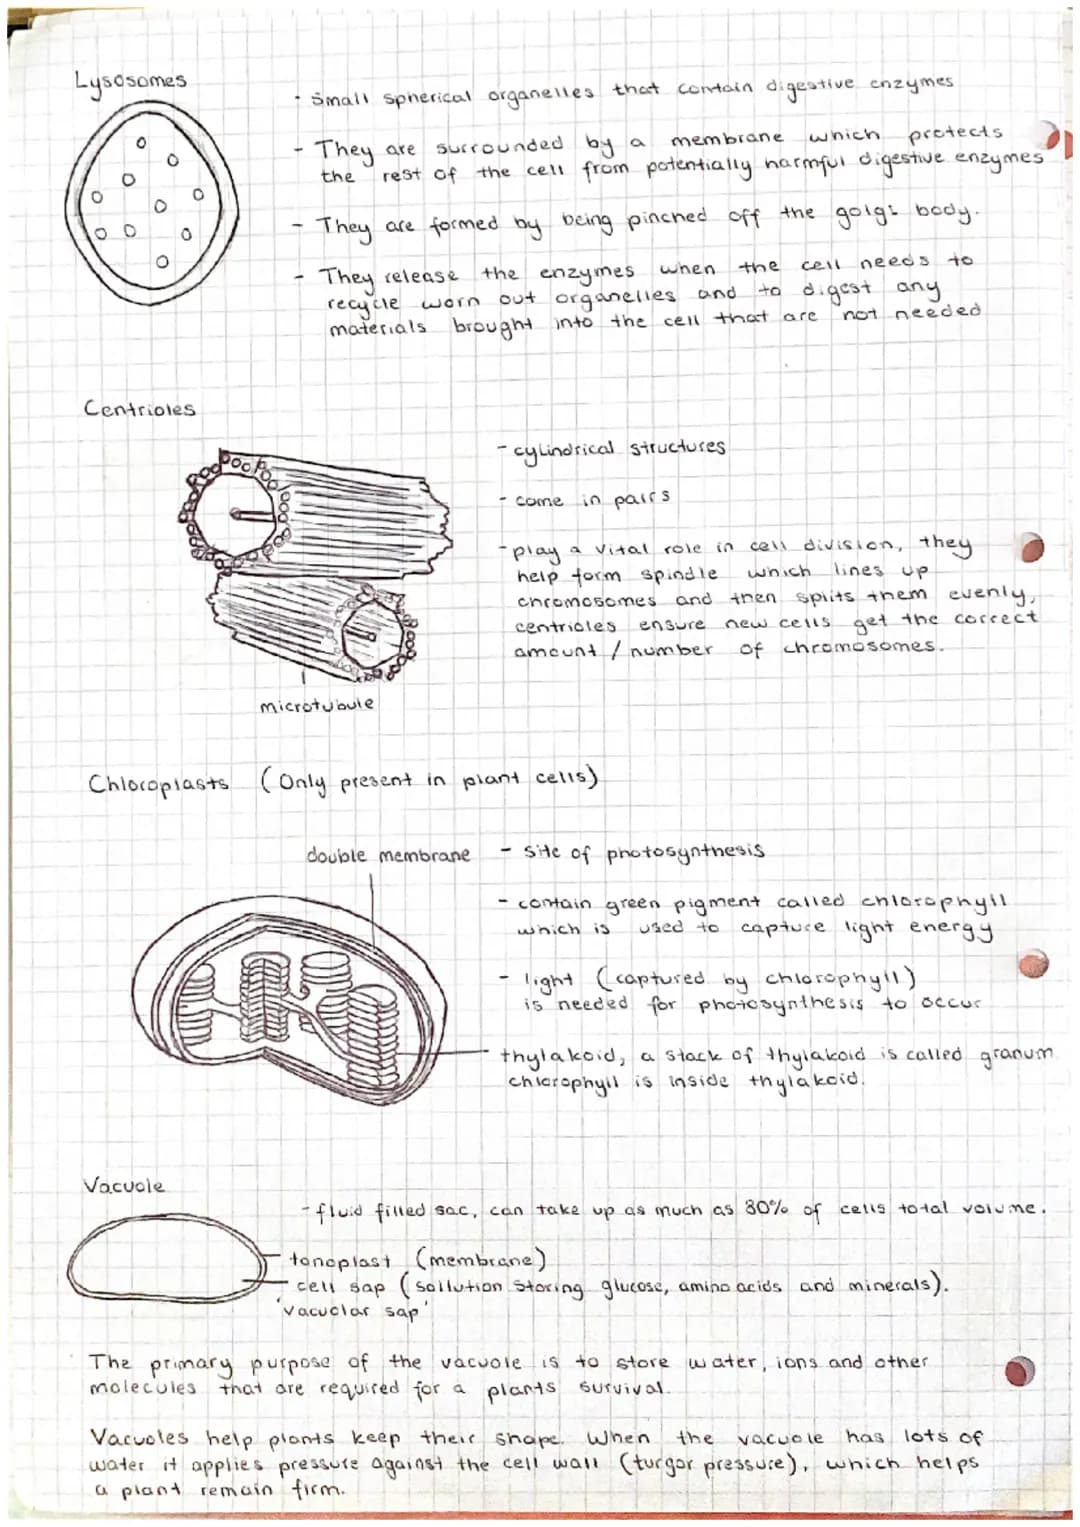 Lysosomes
- Small spherical organelles that contain digestive enzymes
- They are surrounded by a membrane which protects
the rest of the cell from potentially harmful digestive enzymes
- They are formed by being pinched off the golgi body.
- They release the enzymes when the cell needs to
recycle worn out organelles and to digest any
materials brought into the cell that are not needed
Centrioles
- cylindrical structures
- come in pairs
- play a vital role in cell division, they
help form spindle which lines up
chromosomes and then splits them evenly,
centrioles ensure new cells get the correct
amount / number of chromosomes.
microtubule
Chloroplasts (Only present in plant cells)
double membrane
- site of photosynthesis
- contain green pigment called chlorophyll
which is used to capture light energy
- light (captured by chlorophyll)
is needed for photosynthesis to occur
thylakoid, a stack of thylakoid is called granum
chlorophyll is inside thylakoid.
Vacuole
- fluid filled sac, can take up as much as 80% of cells total volume.
tonoplast (membrane)
cell sap (sollution storing glucose, amino acids and minerals).
'vacuolar sap'
The primary purpose of the vacuole is to store water, ions and other
molecules that are required for a plants survival.
Vacuoles help plants keep their shape. When the vacuole has lots of
water it applies pressure against the cell wall (turgor pressure), which helps
a plant remain firm.